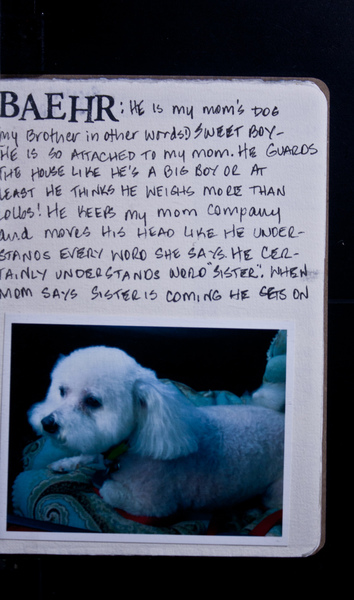 BAEHR: HE IS my mom's DOG
my Brother in other words:) SWEET BOY-
HE IS SO ATTACHED TO my mom. HE GUARDS
THE HOUSE LIKE HE'S A BIG BOY OR AT
LEAST HE THINKS HE WEIGHS MORE THAN
! HE KEEPS my mom company
and moves HIS HEAD LIKE HE UNDER-
STANDS EVERY WORD SHE SAYS. HE CER-
TAINLY UNDERSTANDS WORD "SISTER". WHEN
MOM SAYS SISTER IS COMING HE GETS ON